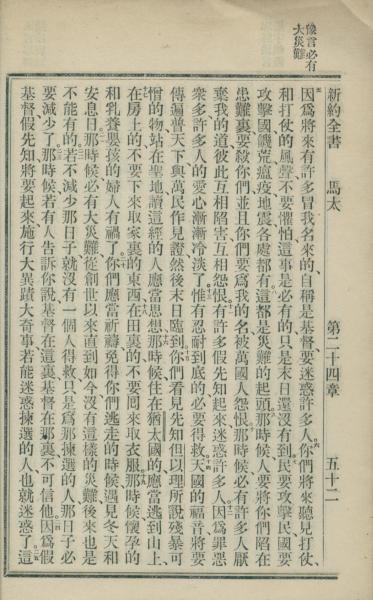 豫言必有
大災難
新約全書　馬太　第二十四章　五十二
因爲將來有許多冒我名來的自稱是基督要迷惑許多人你們將來聽見打仗、
和打仗的風聲不要懼怕這事是必有的只是末日還沒有到民要攻擊民國要
攻擊國饑荒瘟疫地震各處都有這都是災難的起頭那時候人要將你們陷在
患難裏要殺你們並且你們要爲我的名被萬國人怨恨那時候必有許多人厭
棄我的道彼此互相陷害互相怨恨有許多假先知起來迷惑許多人因爲罪惡
衆多許多人的愛心漸漸冷淡了惟有忍耐到底的必要得救天國的福音將要
傳遍普天下與萬民作見證然後末日臨到你們看見先知但以理所說殘暴可
憎的物站在聖地讀這經的人應當思想那時候住在猶太國的應當逃到山上、
在房上的不要下來取家裏的東西在田裏的不要囘來取衣服那時候懷孕的
和乳養嬰孩的婦人有禍了你們應當祈禱免得你們逃走的時候遇見冬天和
安息日那時候必有大災難從創世以來直到如今沒有這樣的災難後來也是
不能有的若不減少那日子就沒有一個人得救只是爲那揀選的人那日子必
要減少了那時候若有人告訴你說基督在這裏基督在那裏不可信他因爲假
基督假先知將要起來施行大異蹟大奇事若能迷惑揀選的人也就迷惑了這